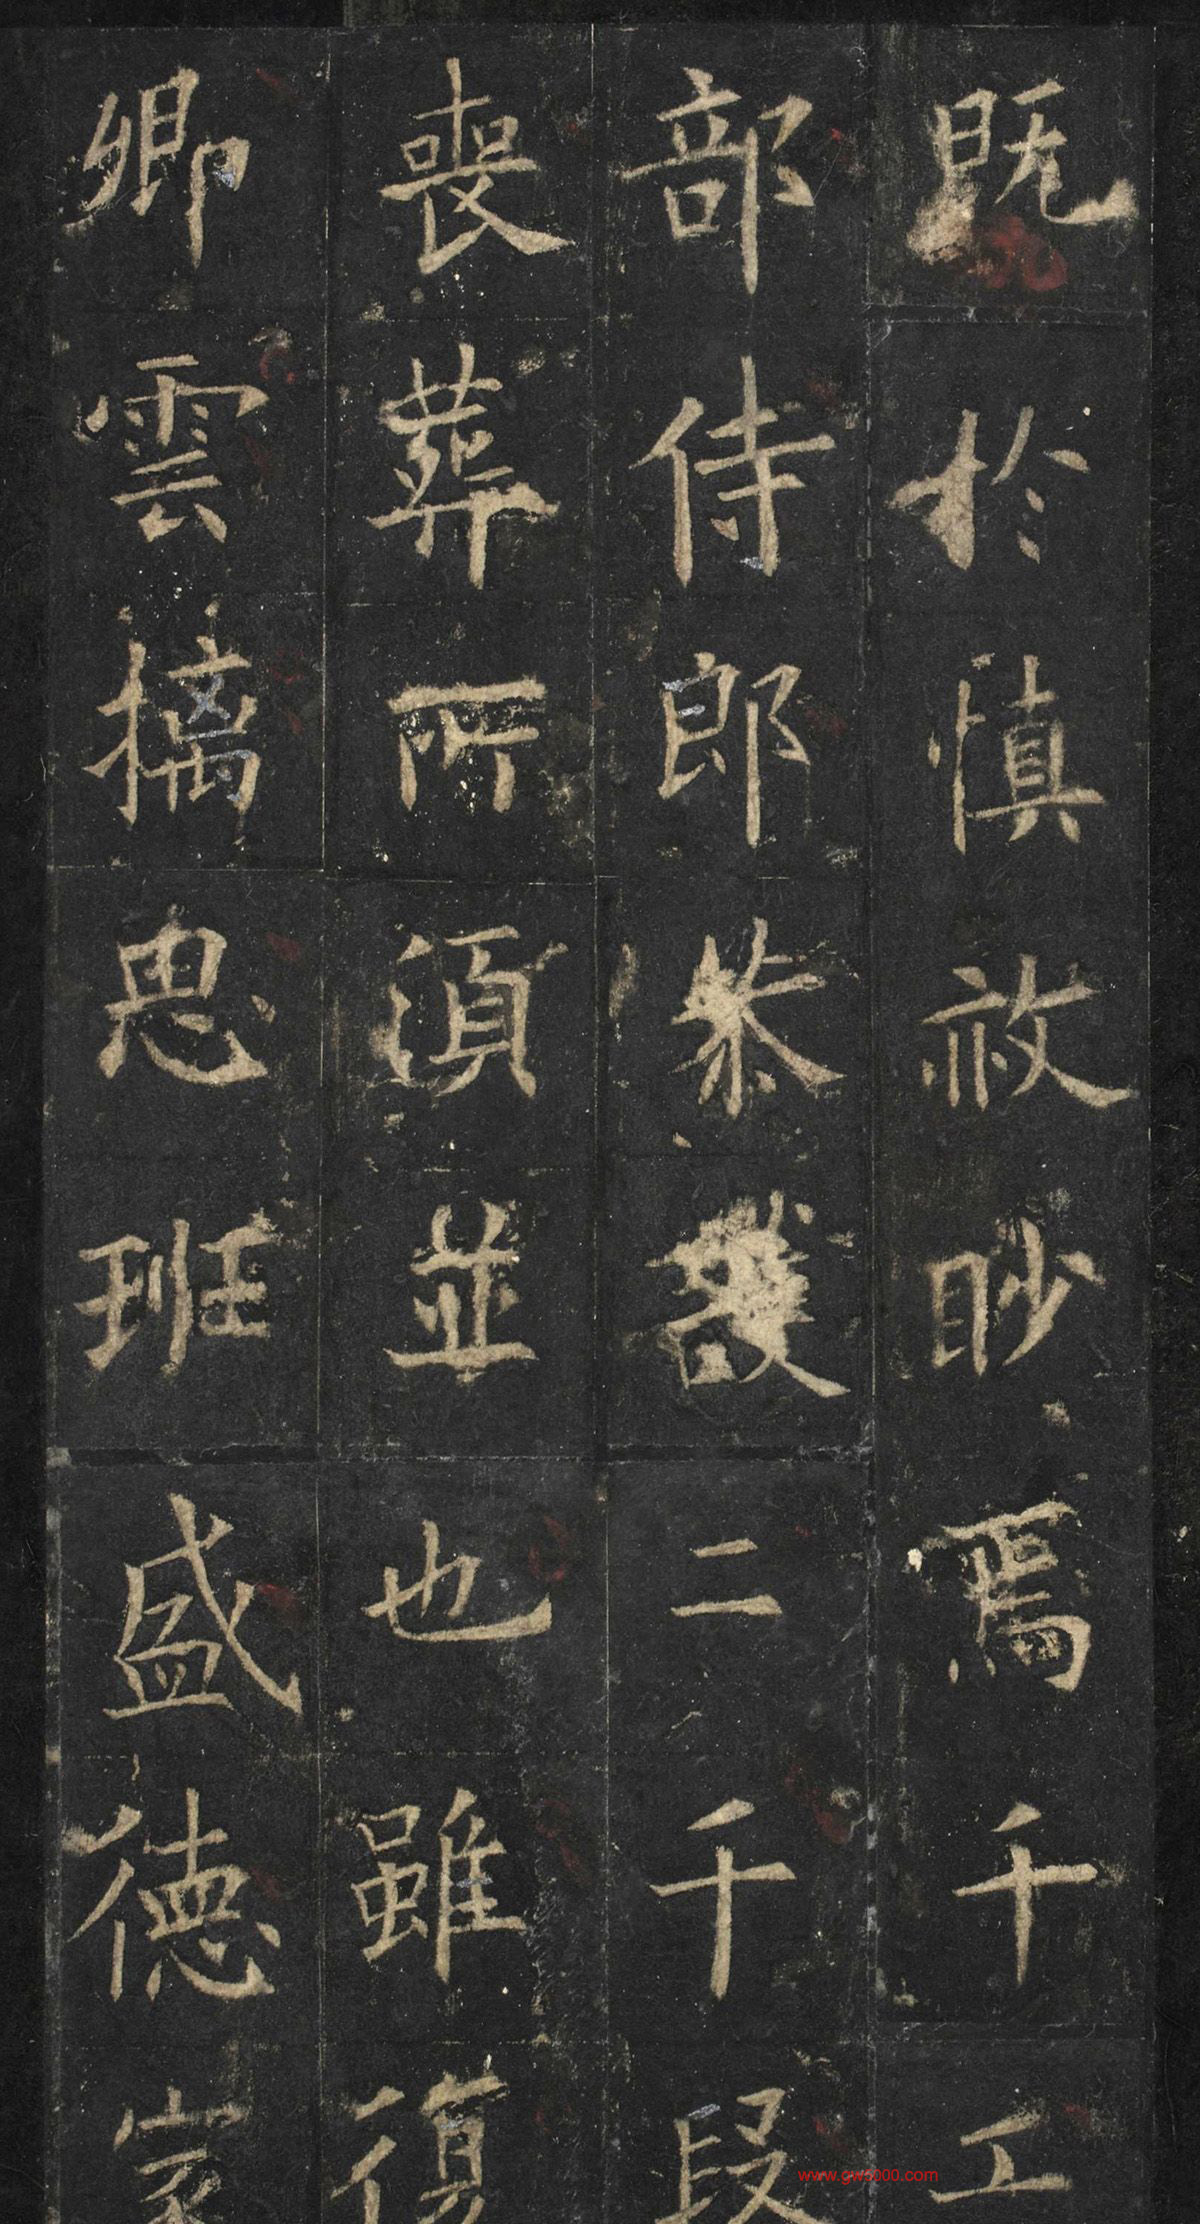 既於慎赦眇焉千工
部侍郎恭護二千段
喪葬所須並也雖復
卿雲摛思班盛德家
www.gw5000.com